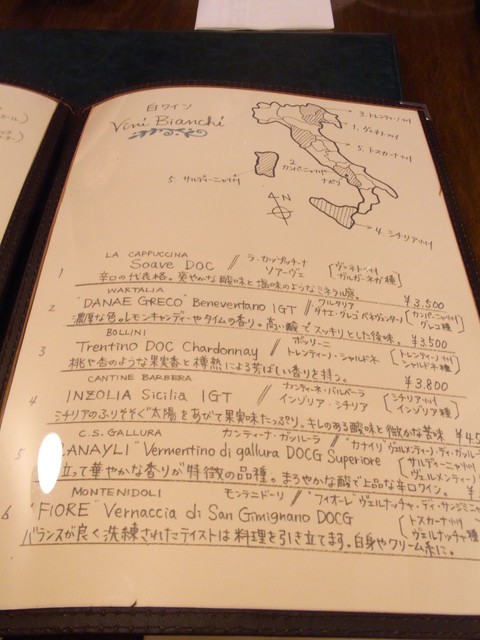 白ワイン
Vini Bianchi
3. トレンティーノ州
1. ヴェネト州
5. トスカーナ州
2. カンパーニャ州
ナポリ
5. サルディーニャ州
N
4. シチリア州
LA CAPPUCCINA
1 Soave DOC // ラ・カップッチーナ ソアーヴェ [ヴェネト州 ガルガーネガ種]
辛口の代表格。爽やかな酸味と塩味のようなミネラル感。 ¥3,500
WARTALIA
2 "DANAE GRECO" Beneventano IGT // ワルタリア ダナエ・グレコ ベネヴェンターノ [カンパーニャ州 グレコ種]
濃厚な色。レモンキャンディーやタイムの香り。高い酸でスッキリとした後味。 ¥3,500
BOLLINI
3 Trentino DOC Chardonnay // ボッリーニ トレンティーノ・シャルドネ [トレンティーノ州 シャルドネ種]
桃や杏のような果実香と樽熟による芳ばしい香りを持つ。 ¥3,800
CANTINE BARBERA
4 INZOLIA Sicilia IGT // カンティーネ・バルベーラ インゾリア・シチリア [シチリア州 インゾリア種]
シチリアのふりそそぐ太陽をあびて果実味たっぷり。キレのある酸味と微かな苦味 ¥4,5
C.S. GALLURA カンティーナ・ガッルーラ
5 ANAYLI" Vermentino di gallura DOCG Superiore // "カナイリ" ヴェルメンティーノ・ディ・ガッルーラ [サルディーニャ州 ヴェルメンティーノ
立って華やかな香りが特徴の品種。まろやかな酸で上品な辛口ワイン。 ¥
MONTENIDOLI モンテニドーリ
6 "FIORE" Vernaccia di San Gimignano DOCG // "フィオーレ" ヴェルナッチャ・ディ・サンジミニャ [トスカーナ州 ヴェルナッチャ種
バランスが良く洗練されたテイストは料理を引き立てます。白身やクリーム系に。